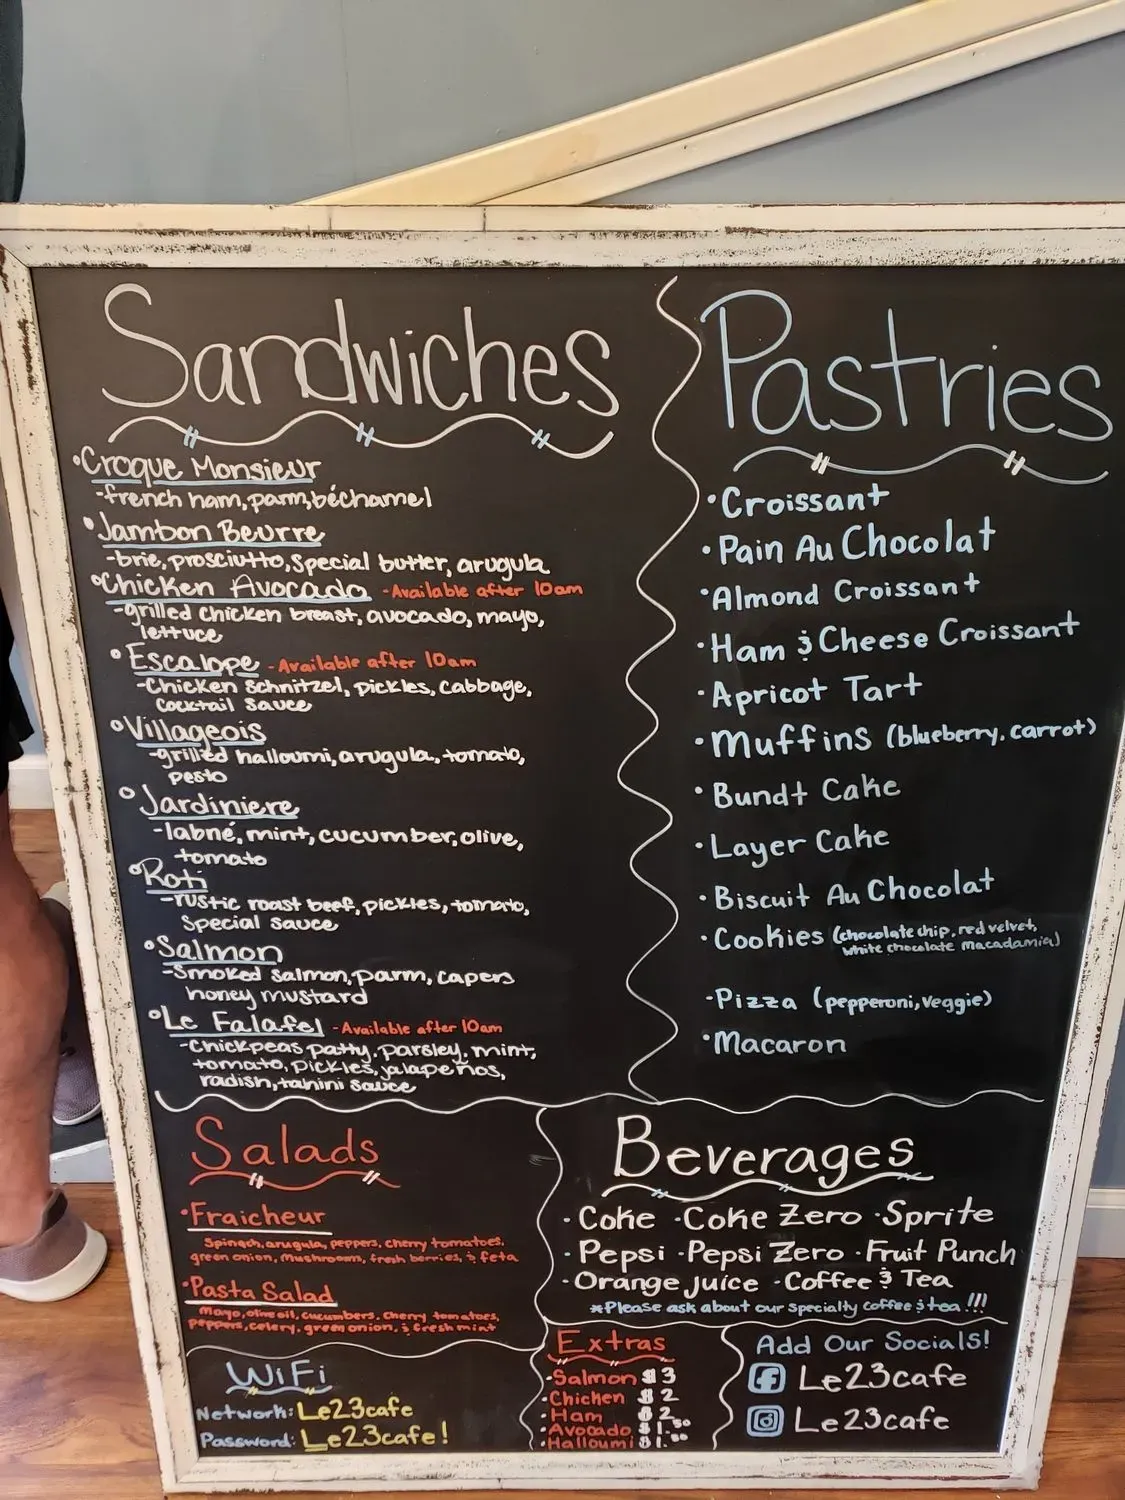 Sandwiches
•Croque Monsieur
-french ham, parm, béchamel
•Jambon Beurre
-brie, prosciutto, Special butter, arugula
•Chicken Avocado -Available after 10am
-grilled chicken breast, avocado, mayo,
lettuce
•Escalope -Available after 10am
-Chicken Schnitzel, pickles, cabbage,
Cocktail Sauce
•Villageois
-grilled halloumi, arugula, tomato,
pesto
•Jardiniere
-labné, mint, cucumber, olive,
tomato
•Roti
-rustic roast beef, pickles, tomato,
Special sauce
•Salmon
-Smoked salmon, parm, capers
honey mustard
•Le Falafel -Available after 10am
-Chickpeas patty, parsley, mint,
tomato, pickles, jalapeños,
radish, tahini sauce
Pastries
•Croissant
•Pain Au Chocolat
•Almond Croissant
•Ham & Cheese Croissant
•Apricot Tart
•Muffins (blueberry, carrot)
•Bundt Cake
•Layer Cake
•Biscuit Au Chocolat
•Cookies (chocolate chip, red velvet,
white chocolate macadamia)
•Pizza (pepperoni, veggie)
•Macaron
Salads
•Fraicheur
Spinach, arugula, peppers, cherry tomatoes,
green onion, mushroom, fresh berries, & feta
•Pasta Salad
Mayo, olive oil, cucumbers, cherry tomatoes,
peppers, celery, green onion, & fresh mint
WiFi
Network: Le23cafe
Password: Le23cafe!
Beverages
•Coke •Coke Zero •Sprite
•Pepsi •Pepsi Zero •Fruit Punch
•Orange juice •Coffee & Tea
*Please ask about our specialty coffee & tea !!!
Extras
•Salmon $3
•Chicken $2
•Ham $2
•Avocado $1.50
•Halloumi $1.50
Add Our Socials!
Le23cafe
Le23cafe